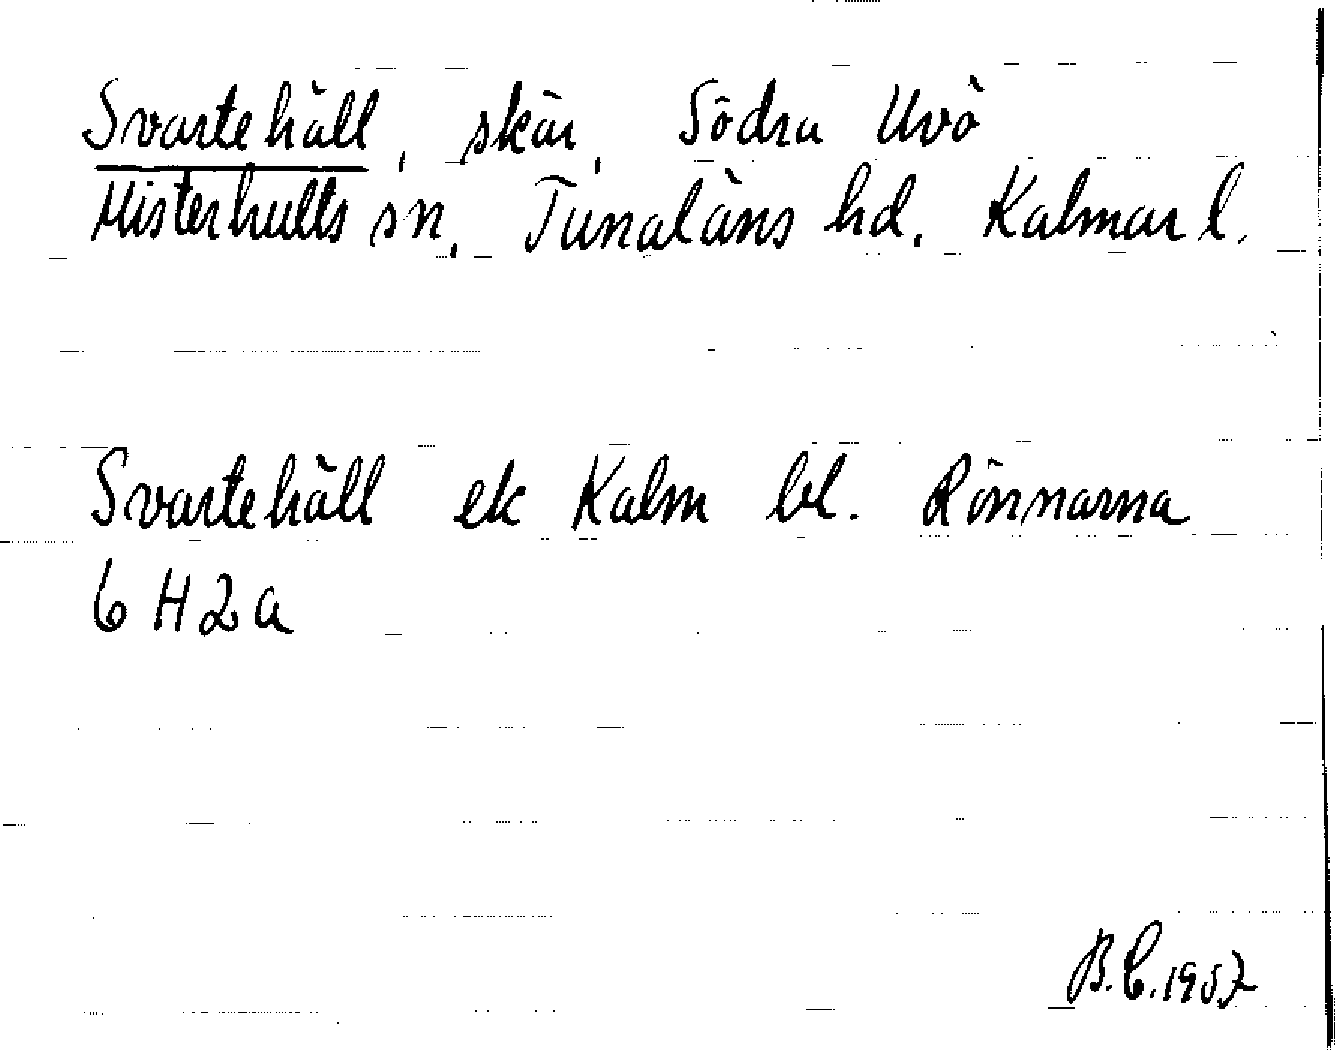 Svartehäll, skär, Södra Uvö
Misterhults sn, Tunaläns hd. Kalmar l.
Svartehäll ek Kalm bl. Rönnarna
6 H 2 a
B.C. 1957